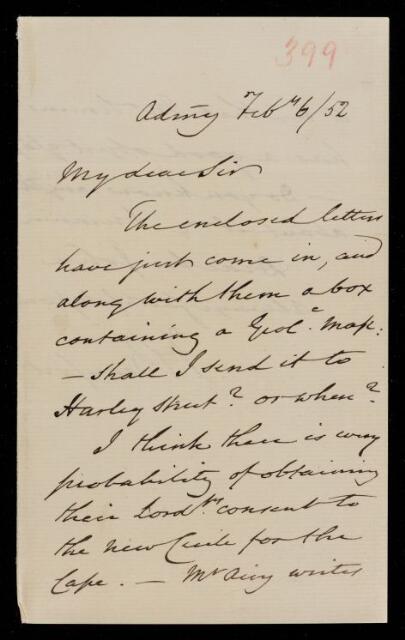 399
Admy Feby 6/52
My dear Sir
The enclosed letters
have just come in, and
along with them a box
containing a Geol. Map:
— Shall I send it to
Harley Street? or when?
I think there is every
probability of obtaining
their Lordps consent to
the new Circle for the
Cape. — Mr Airy writes